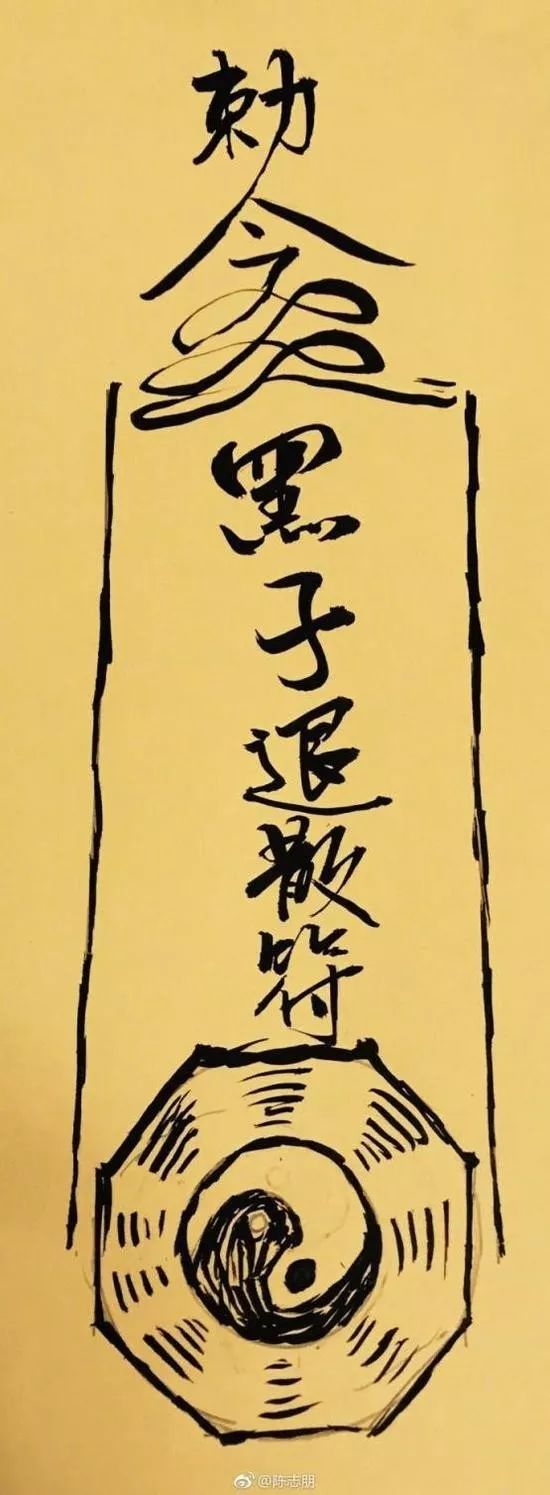 敕令
黑子退散符
@陈志朋